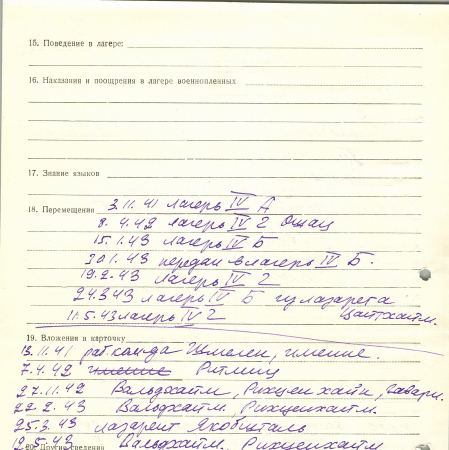 15. Поведение в лагере:
16. Наказания и поощрения в лагере военнопленных
17. Знание языков
18. Перемещения 3.11.41 лагерь IV А
8.4.42 лагерь IV Г Ошац
15.1.43 лагерь IV Б
20.1.43 передан в лагерь IV Б.
19.2.43 лагерь IV Г
24.3.43 лагерь IV Б лазарета
11.5.43 лагерь IV Г Цайтхайм.
19. Вложения в карточку
13.11.41 раб. ком-да имение.
7.4.42 имение Ритмиц
27.11.42 Вальдхайм, Рихценхайн,
22.2.43 Вальдхайм. Рихценхайм.
25.3.43 лазарет Якобшталь
12.5.43 Вальдхайм. Рихценхайм
20. Другие сведения